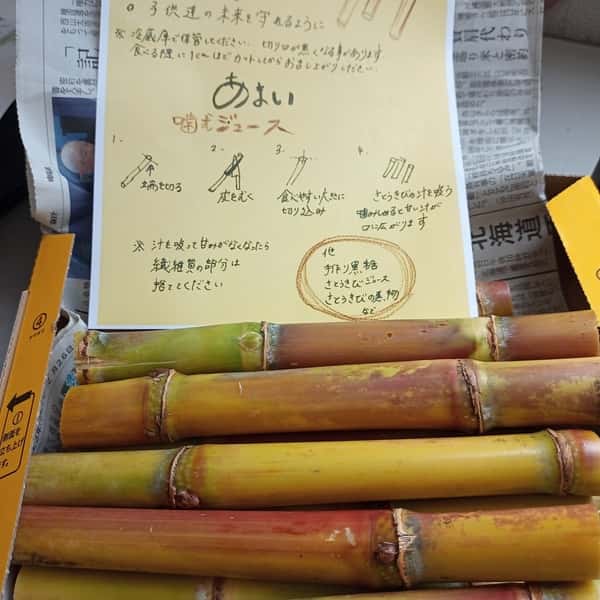 ○ 子供達の未来を守れるように
※ 冷蔵庫で保管してください. 切り口が黒くなる事があります.
食べる際に1cmほどカットしてからお召し上がりください.
あまい
噛むジュース
1.
2.
3.
4.
端を切る
皮をむく
食べやすい大きさに
切り込み
さとうきびの汁を吸う
噛みしめると甘い汁が
口に広がります
※ 汁を吸って甘みがなくなったら
繊維質の部分は
捨ててください
他
手作り黒糖
さとうきびジュース
さとうきびの煮物
など
北海道
④
①